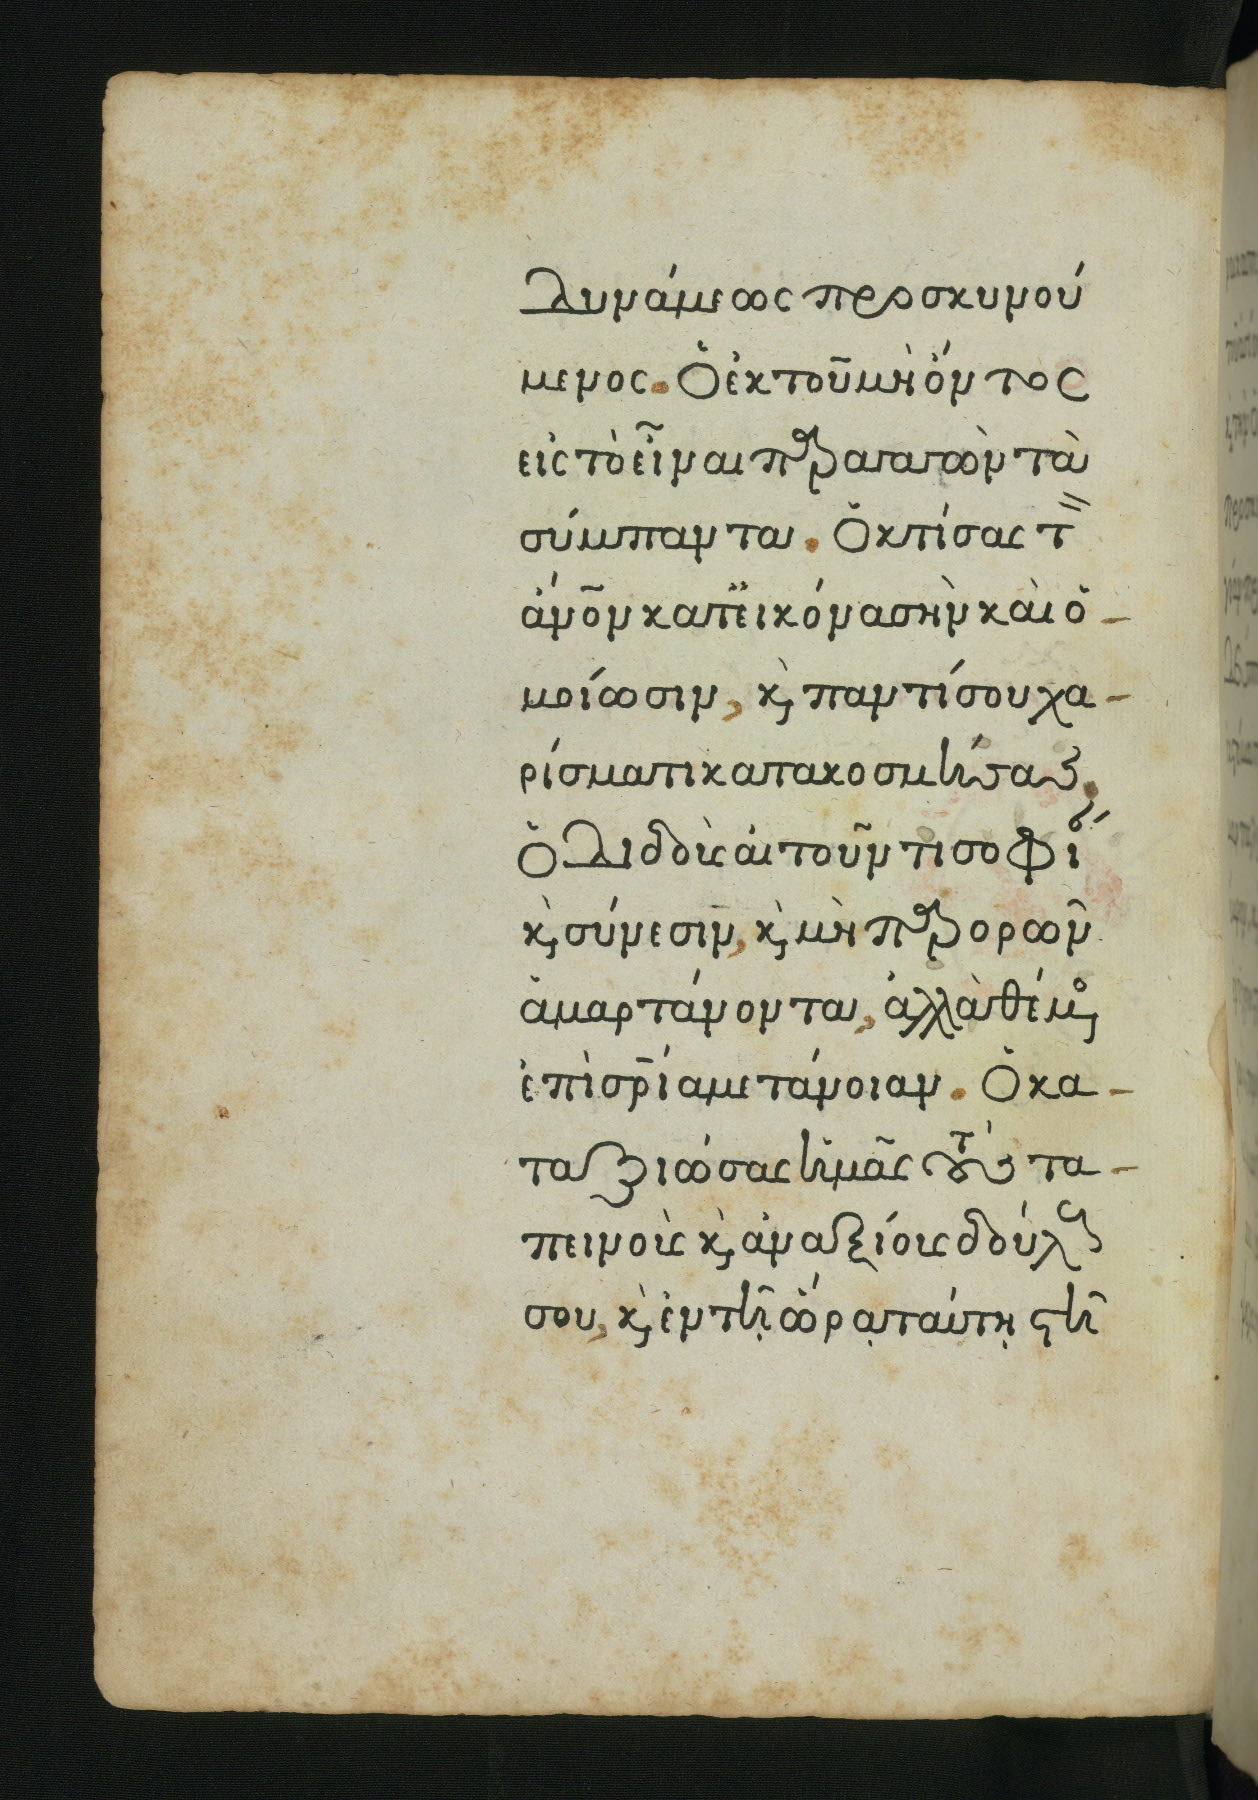 δυνάμεως προσκυνού
μενος. Ὁ ἐκ τοῦ μὴ ὄντος
εἰς τὸ εἶναι παραγαγὼν τὰ
σύμπαντα. Ὁ κτίσας τ
ἄνον κατ εἰκόνα σὴν καὶ ὁ
μοίωσιν, κ, παντί σου χα
ρίσματι κατακοσμήσας,
Ὁ διδοὺς αἰτοῦντι σοφί
κ, σύνεσιν, κ, μὴ παρορῶν
ἁμαρτάνοντα, ἀλλὰ θέμ
ἐπὶ σρία μετάνοιαν. Ὁ κα
ταξιώσας ἡμᾶς τοὺς τα
πεινοὺς κ, ἀναξίους δούλ
σου, κ, ἐν τῇ ὥρᾳ ταύτῃ στῆ